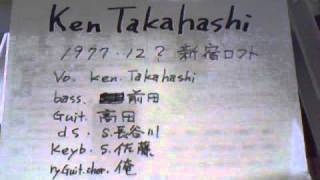 Ken Takahashi
1977.12? 新宿ロフト
Vo. Ken. Takahashi
bass. 前田
Guit. 高田
ds. S.長谷川
Keyb. S. 佐藤
ryGuit.chor. 俺